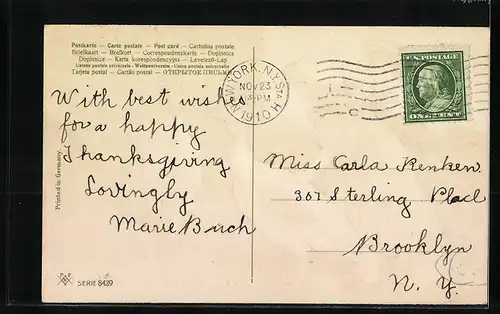 Postkarte – Carte postale – Post card – Cartolina postale
Briefkaart – Brefkort – Correspondenzkarte – Dopisnica
Dopisnice – Karta korespondencyjna – Levelező-Lap
Unione postale universale – Weltpostverein – Union postale universelle
Tarjeta postal – Cartão postal – ОТКРЫТОЕ ПИСЬМО
NEW YORK, N.Y. STA. H
NOV 23
PM
1910
U.S. POSTAGE
ONE CENT
With best wishes
for a happy
Thanksgiving
Lovingly
Marie Buch
Miss Carla Renken
307 Sterling Place
Brooklyn
N. Y.
Printed in Germany.
SERIE 8429